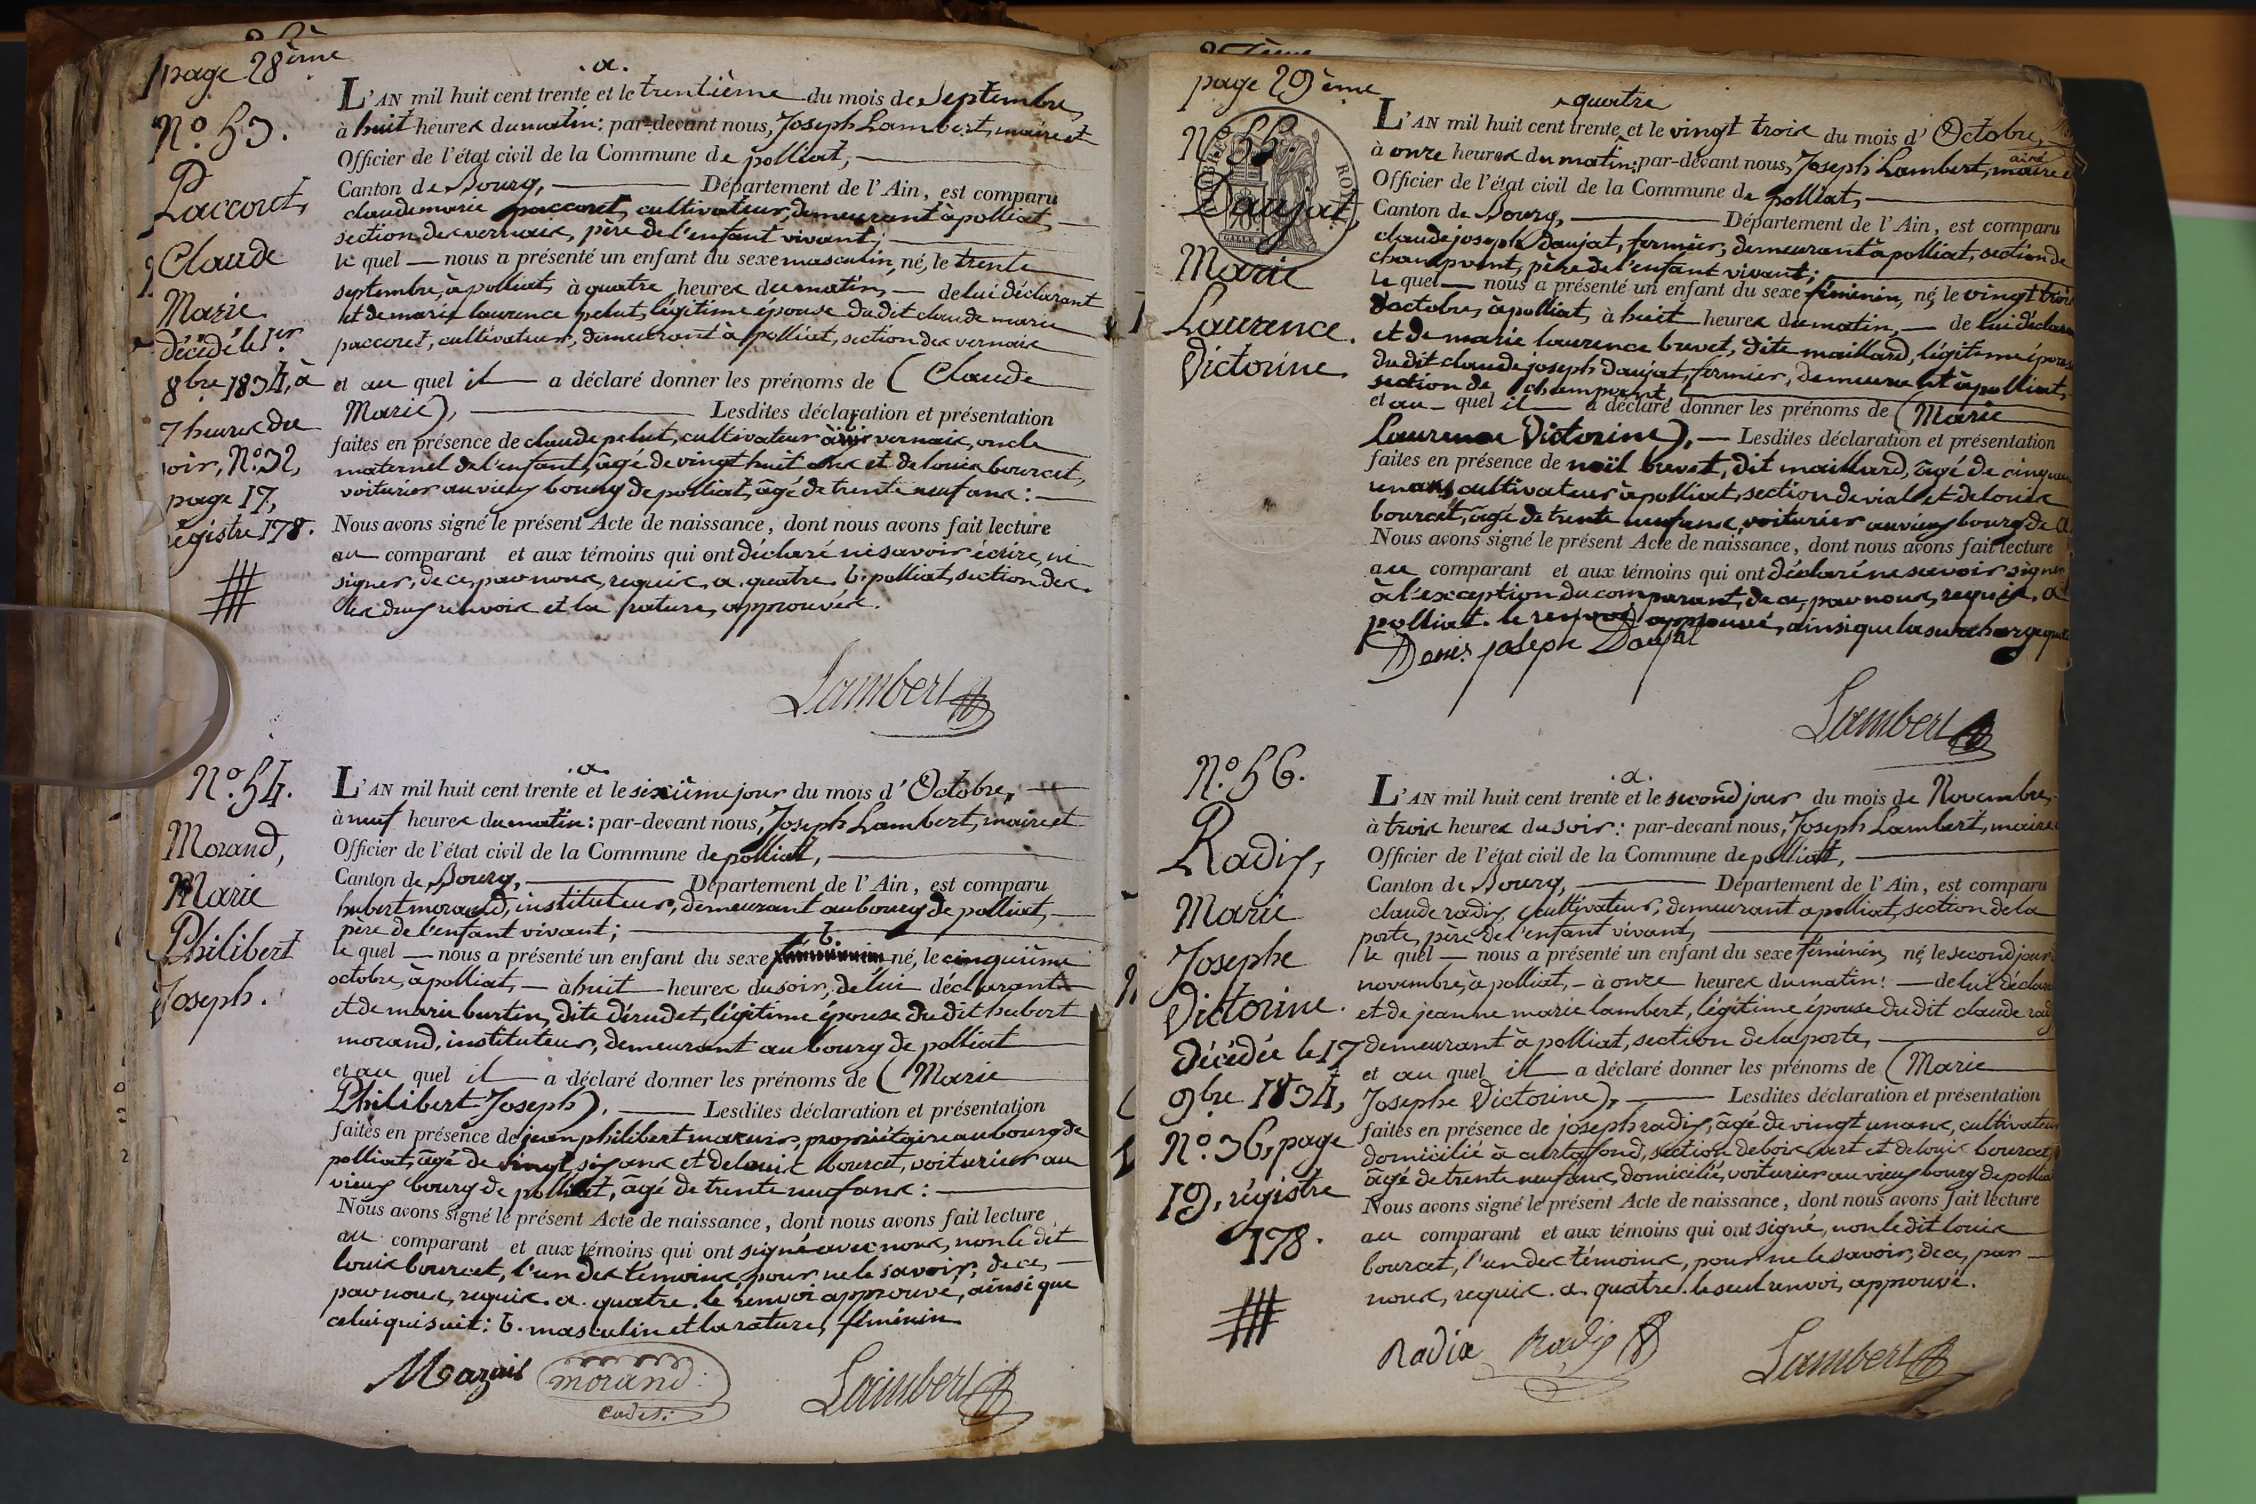 page 28ème
N.o 53.
Paccoret,
Claude
Marie.
décédé le 1er
8bre 1834, à
7 heures du
soir, N.o 32,
page 17,
régistre 178.
.a.
L'AN mil huit cent trente et le trentième du mois de Septembre,
à huit heures du matin: par-devant nous, Joseph Lambert, maire et
Officier de l'état civil de la Commune de polliat,
Canton de Bourg, Département de l'Ain, est comparu
claude marie paccoret, cultivateur, demeurant à polliat,
section des vernais, père de l'enfant vivant;
le quel nous a présenté un enfant du sexe masculin, né, le trente
septembre, à polliat, à quatre heures du matin, de lui déclarant
et de marie laurence pelut, légitime épouse du dit claude marie
paccoret, cultivateur, demeurant à polliat, section des vernais
et au quel il a déclaré donner les prénoms de (Claude
Marie), Lesdites déclaration et présentation
faites en présence de claude pelut, cultivateur à vernais, oncle
maternel de l'enfant, âgé de vingt huit ans et de louis bourcet,
voiturier au vieux bourg de polliat, âgé de trente neuf ans:
Nous avons signé le présent Acte de naissance, dont nous avons fait lecture
au comparant et aux témoins qui ont déclaré ne savoir écrire, ni
signer, de ce, par nous, requis. a. quatre. b. polliat, section des.
les deux renvois et la rature, approuvés.
Lambert
N.o 54.
Morand,
Marie
Philibert
Joseph.
.a.
L'AN mil huit cent trente et le sixième jour du mois d'Octobre,
à neuf heures du matin: par-devant nous, Joseph Lambert, maire et
Officier de l'état civil de la Commune de polliat,
Canton de Bourg, Département de l'Ain, est comparu
hubert morand, instituteur, demeurant au bourg de polliat,
père de l'enfant vivant;
b.
le quel nous a présenté un enfant du sexe féminin né, le cinquième
octobre, à polliat, à huit heures du soir, de lui déclarant
et de marie burtin, dite dérudet, légitime épouse du dit hubert
morand, instituteur, demeurant au bourg de polliat
et au quel il a déclaré donner les prénoms de (Marie
Philibert Joseph). Lesdites déclaration et présentation
faites en présence de jean philibert mazuir, propriétaire au bourg de
polliat, âgé de vingt six ans et de louis bourcet, voiturier au
vieux bourg de polliat, âgé de trente neuf ans:
Nous avons signé le présent Acte de naissance, dont nous avons fait lecture
au comparant et aux témoins qui ont signé avec nous, non le dit
louis bourcet, l'un des témoins, pour ne le savoir, de ce,
par nous, requis. a. quatre. le renvoi approuvé, ainsi que
celui qui suit: b. masculin et la rature, féminin
Mazuir morand Lambert
page 29ème
N.o 55.
Daujat,
Marie
Laurence.
Victorine.
quatre
L'AN mil huit cent trente et le vingt trois du mois d'Octobre,
à onze heures du matin: par-devant nous, Joseph Lambert, ainé maire
Officier de l'état civil de la Commune de polliat,
Canton de Bourg, Département de l'Ain, est comparu
claude joseph daujat, fermier, demeurant à polliat, section de
champvent, père de l'enfant vivant;
le quel nous a présenté un enfant du sexe féminin, né, le vingt trois
d'octobre, à polliat, à huit heures du matin, de lui déclara
et de marie laurence buvet, dite maillard, légitime épouse
du dit claude joseph daujat, fermier, demeurant à polliat,
section de champvent,
et au quel il a déclaré donner les prénoms de (Marie
Laurence Victorine), Lesdites déclaration et présentation
faites en présence de noël buvet, dit maillard, âgé de cinquan
un ans, cultivateur à polliat, section de vial et de louis
bourcet, âgé de trente neuf ans, voiturier au vieux bourg de a
Nous avons signé le présent Acte de naissance, dont nous avons fait lecture
au comparant et aux témoins qui ont déclaré ne savoir signer
à l'exception du comparant, de ce, par nous, requis. a
polliat. le renvoi approuvé, ainsi que la surcharge
Denis joseph Daujat
Lambert
N.o 56.
Radix,
Marie
Josephe
Victorine.
Décédée le 17
9bre 1834,
N.o 36, page
19, régistre
178.
.a.
L'AN mil huit cent trente et le second jour du mois de Novembre,
à trois heures du soir: par-devant nous, Joseph Lambert, maire
Officier de l'état civil de la Commune de polliat,
Canton de Bourg, Département de l'Ain, est comparu
claude radix, cultivateur, demeurant à polliat, section de la
porte, père de l'enfant vivant,
le quel nous a présenté un enfant du sexe féminin, né, le second jour
novembre, à polliat, à onze heures du matin: de lui déclara
et de jeanne marie lambert, légitime épouse du dit claude radix
demeurant à polliat, section de la porte,
et au quel il a déclaré donner les prénoms de (Marie
Josephe Victorine), Lesdites déclaration et présentation
faites en présence de joseph radix, âgé de vingt un ans, cultivateur
domicilié à curtafond, section de bois vert et de louis bourcet,
âgé de trente neuf ans, domicilié, voiturier au vieux bourg de polliat
Nous avons signé le présent Acte de naissance, dont nous avons fait lecture
au comparant et aux témoins qui ont signé, non le dit louis
bourcet, l'un des témoins, pour ne le savoir, de ce, par
nous, requis. a. quatre. le seul renvoi, approuvé.
Radix Radix Lambert